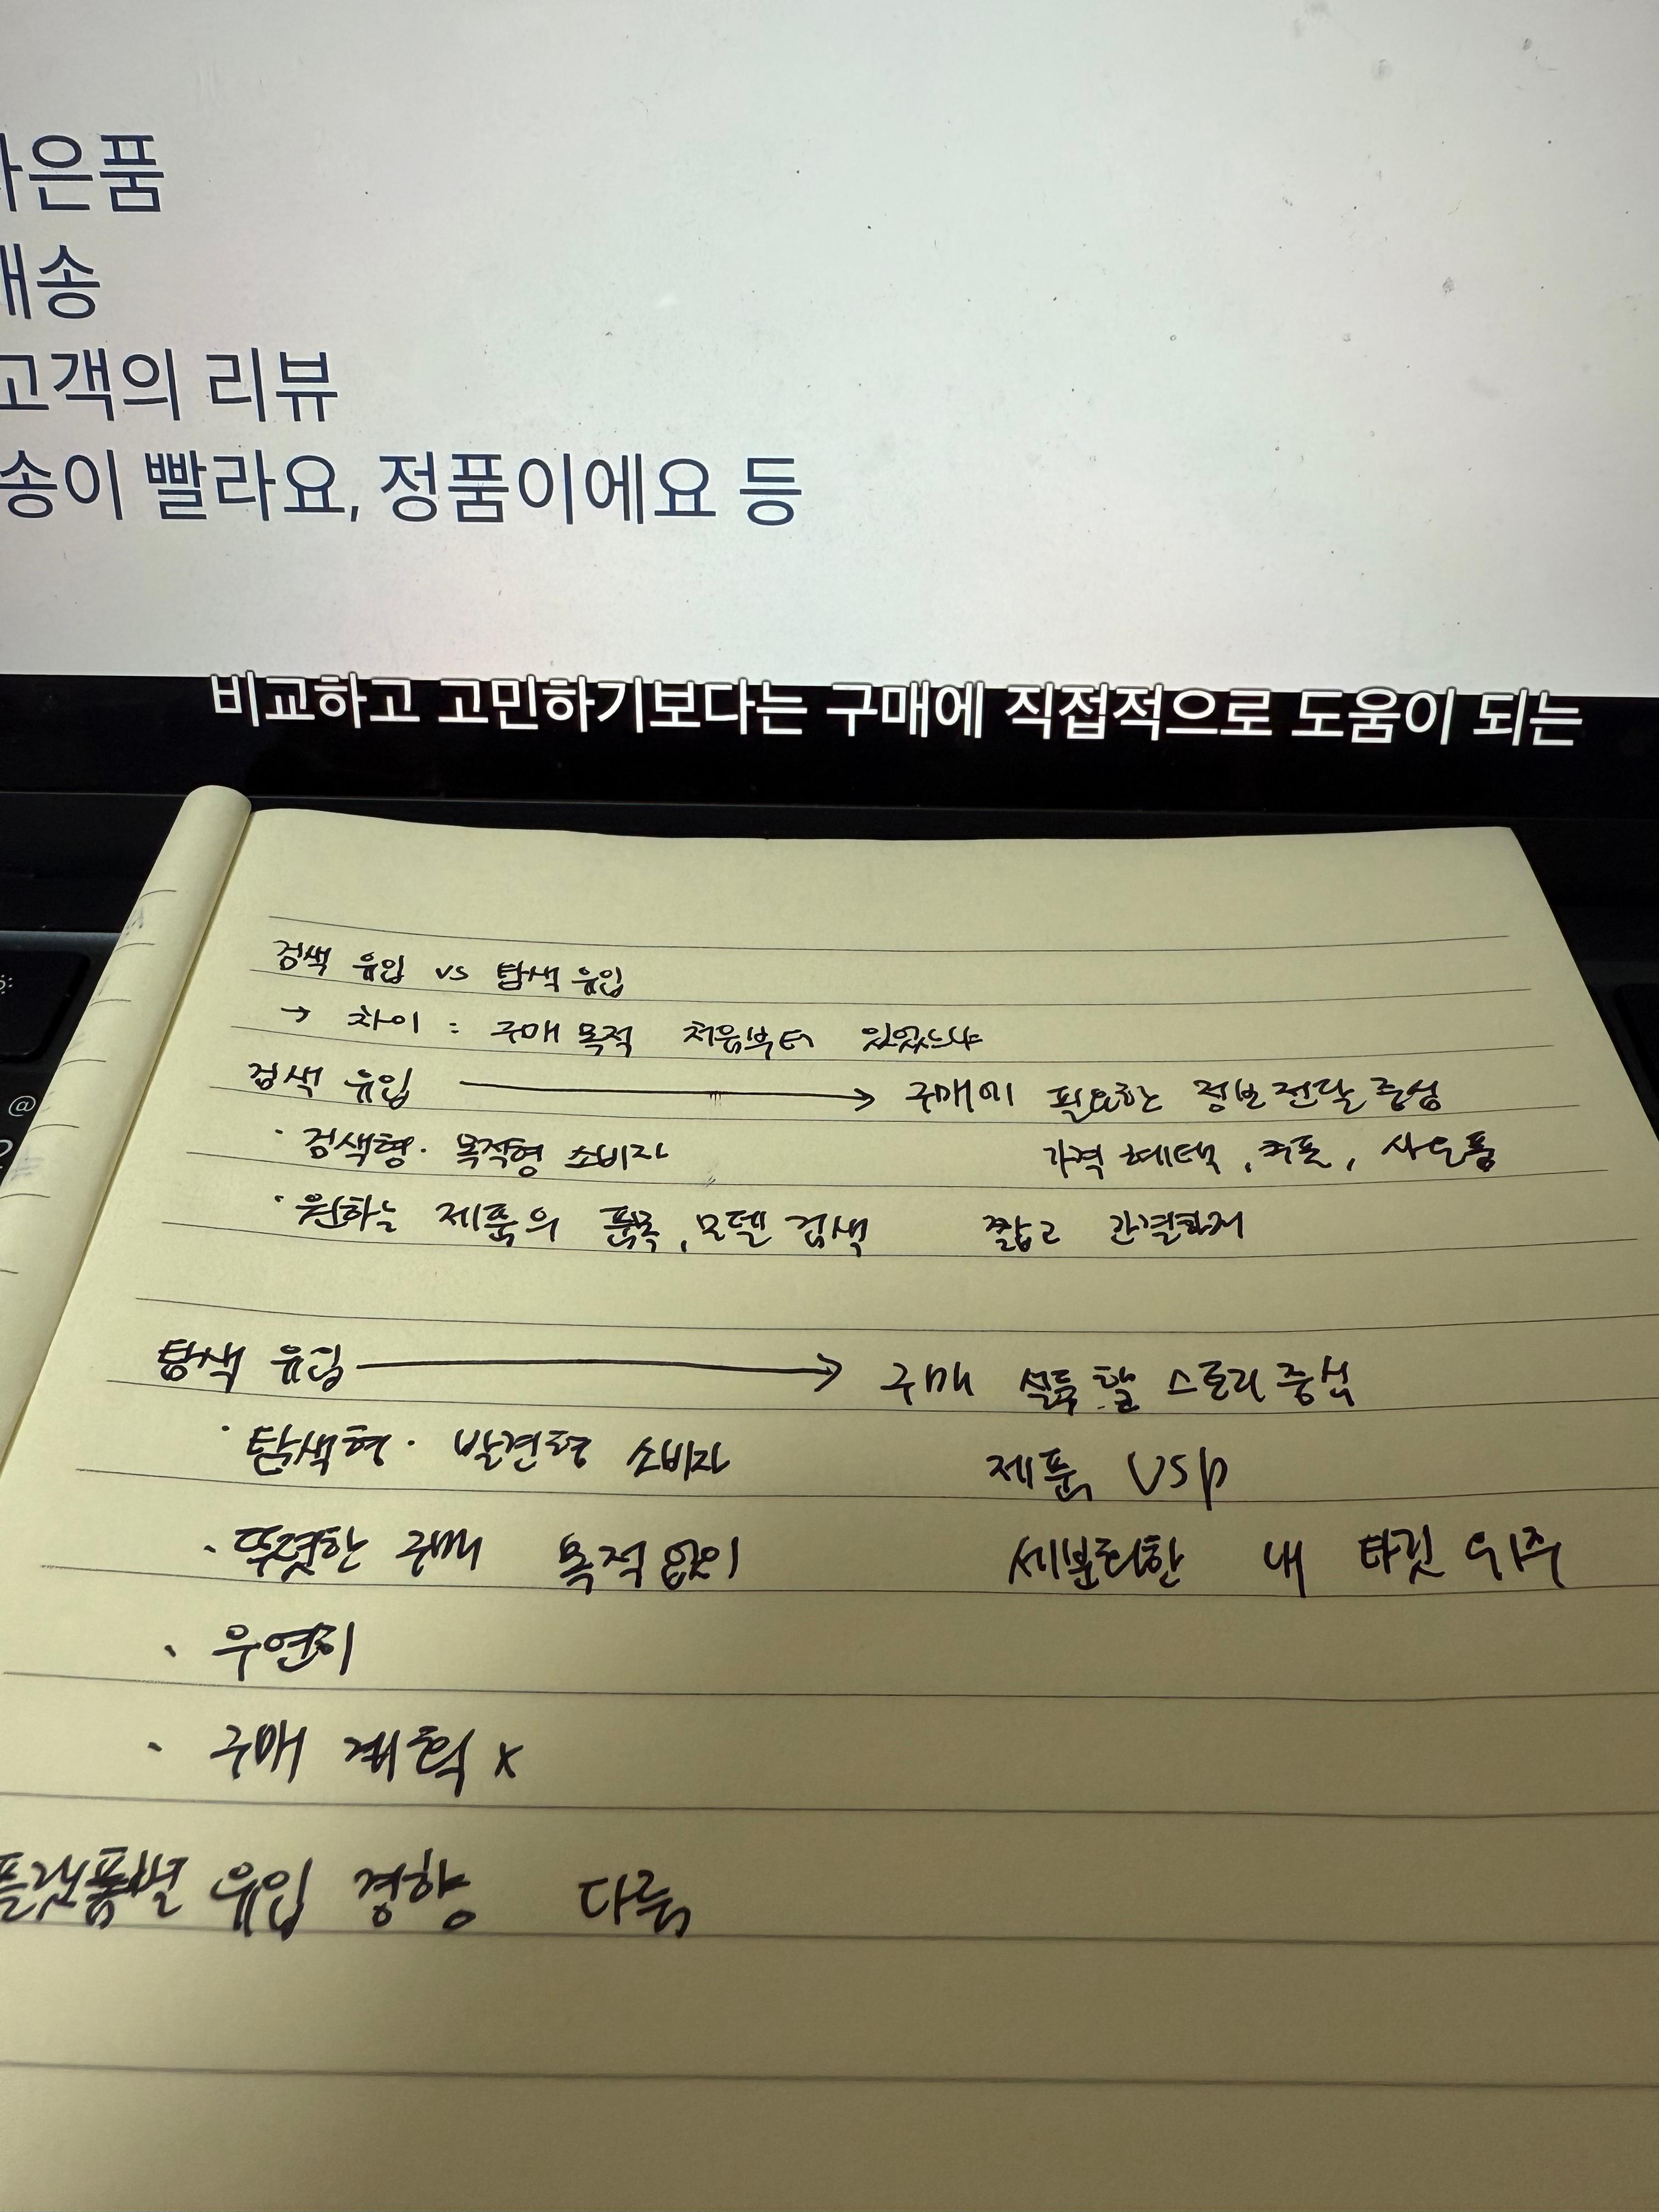 은품
송
고객의 리뷰
송이 빨라요, 정품이에요 등
비교하고 고민하기보다는 구매에 직접적으로 도움이 되는
검색 유입 vs 탐색 유입
→ 차이 : 구매 목적 처음부터 있었느냐
검색 유입 → 구매에 필요한 정보 전달 중심
· 검색형 · 목적형 소비자 가격 혜택, 쿠폰, 사은품
· 원하는 제품의 품목, 모델 검색 짧고 간결하게
탐색 유입 → 구매 설득할 스토리 중심
· 탐색형 · 발견형 소비자 제품 USP
· 뚜렷한 구매 목적 없이 세분화한 내 타깃 위주
· 우연히
· 구매 계획 x
플랫폼별 유입 경향 다름
@